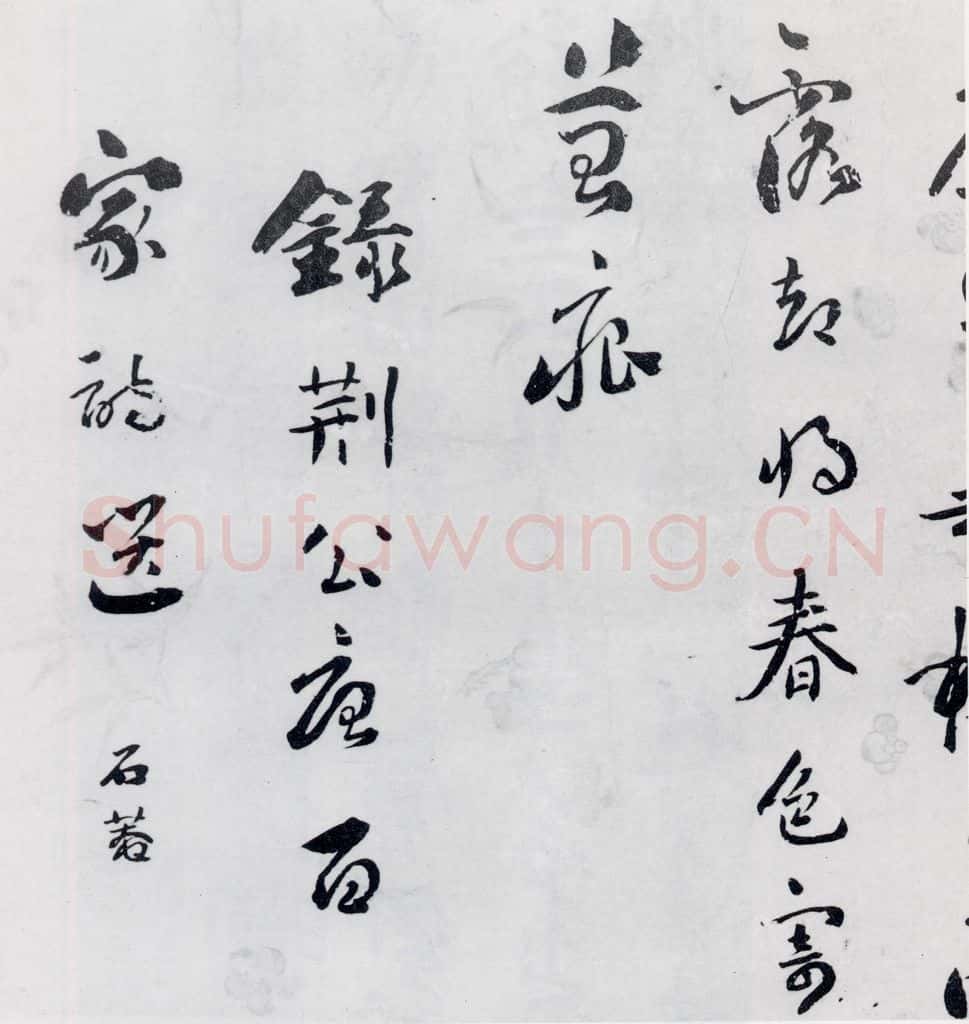 露却将春色寄
苔痕
錄荆公唐百
家詩選 石菴
Shufawang.CN